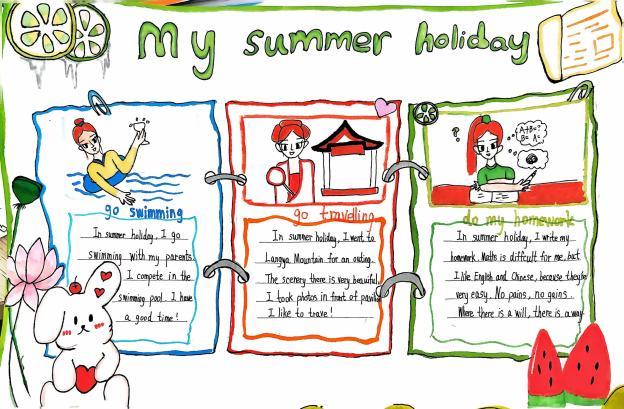 My summer holiday
A+B=?
B= A=
?
go swimming
In summer holiday, I go
swimming with my parents.
I compete in the
swimming pool. I have
a good time!
go travelling
In summer holiday, I went to
Langya Mountain for an outing.
The scenery there is very beautiful.
I took photos in front of pavilio
I like to trave!
do my homework
In summer holiday, I write my
homework. Maths is difficult for me, but
I like English and Chinese, because they're
very easy. No pains, no gains.
Where there is a will, there is a way.